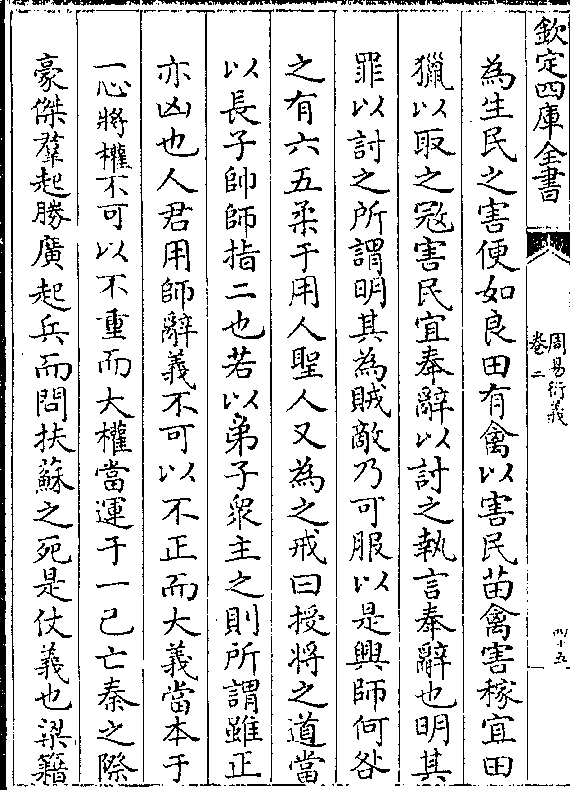 欽定四庫全書
周易衍義
卷二
四十五
為生民之害便如良田有禽以害民苗禽害稼宜田
獵以取之冦害民宜奉辭以討之執言奉辭也明其
罪以討之所謂明其為賊敵乃可服以是興師何咎
之有六五柔于用人聖人又為之戒曰授將之道當
以長子帥師指二也若以弟子衆主之則所謂雖正
亦凶也人君用師辭義不可以不正而大義當本于
一心將權不可以不重而大權當運于一己亡秦之際
豪傑羣起勝廣起兵而問扶蘇之死是仗義也梁籍